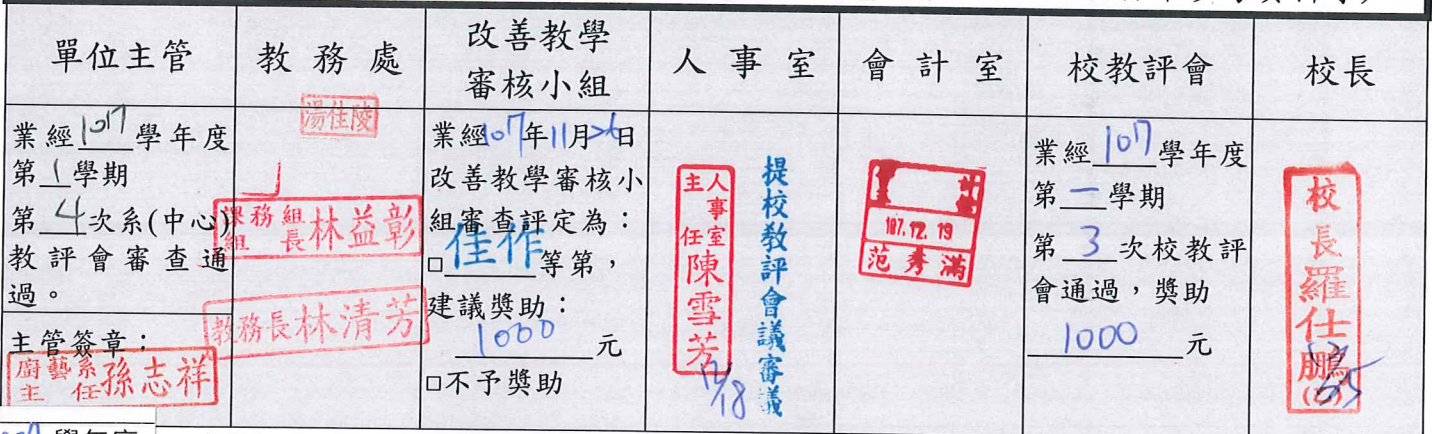 單位主管
教務處
改善教學
審核小組
人事室
會計室
校教評會
校長
業經107學年度
第1學期
第4次系(中心)
教評會審查通
過。
主管簽章:
廚藝系
主任
孫志祥
湯佳陵
課務組
組長
林益彰
教務長林清芳
業經107年11月26日
改善教學審核小
組審查評定為:
□佳作等第,
建議獎助:
1000元
□不予獎助
人事室
主任
陳雪芳
12/18
提校教評會議審議
107.12.19
范秀滿
業經107學年度
第一學期
第3次校教評
會通過,獎助
1000元
校長羅仕鵬
學年度